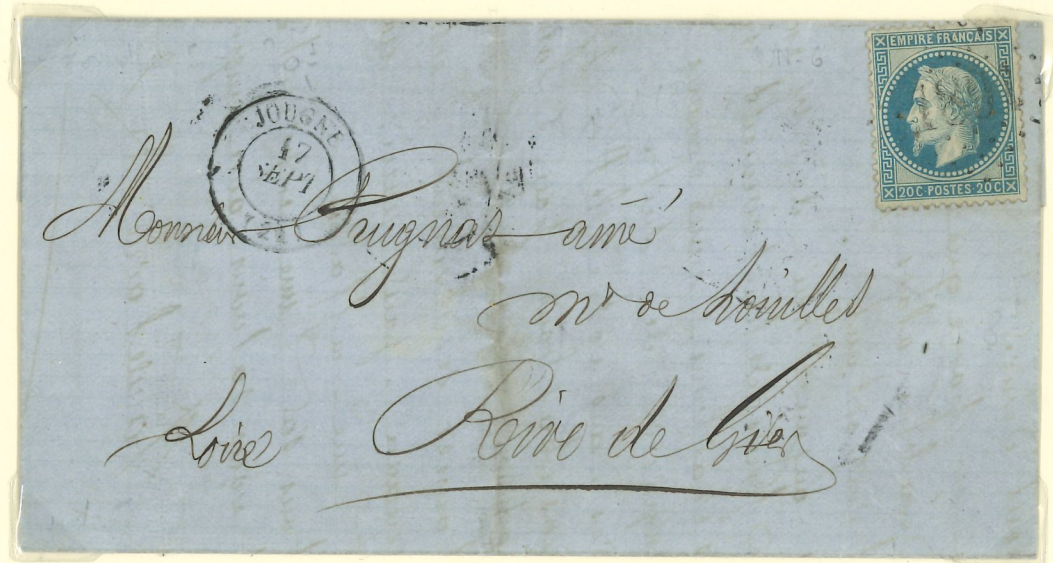 EMPIRE FRANÇAIS
20C·POSTES·20C
JOUGNE
17
SEPT
Monsieur Prugnat ainé
md de houilles
Rive de Gier
Loire